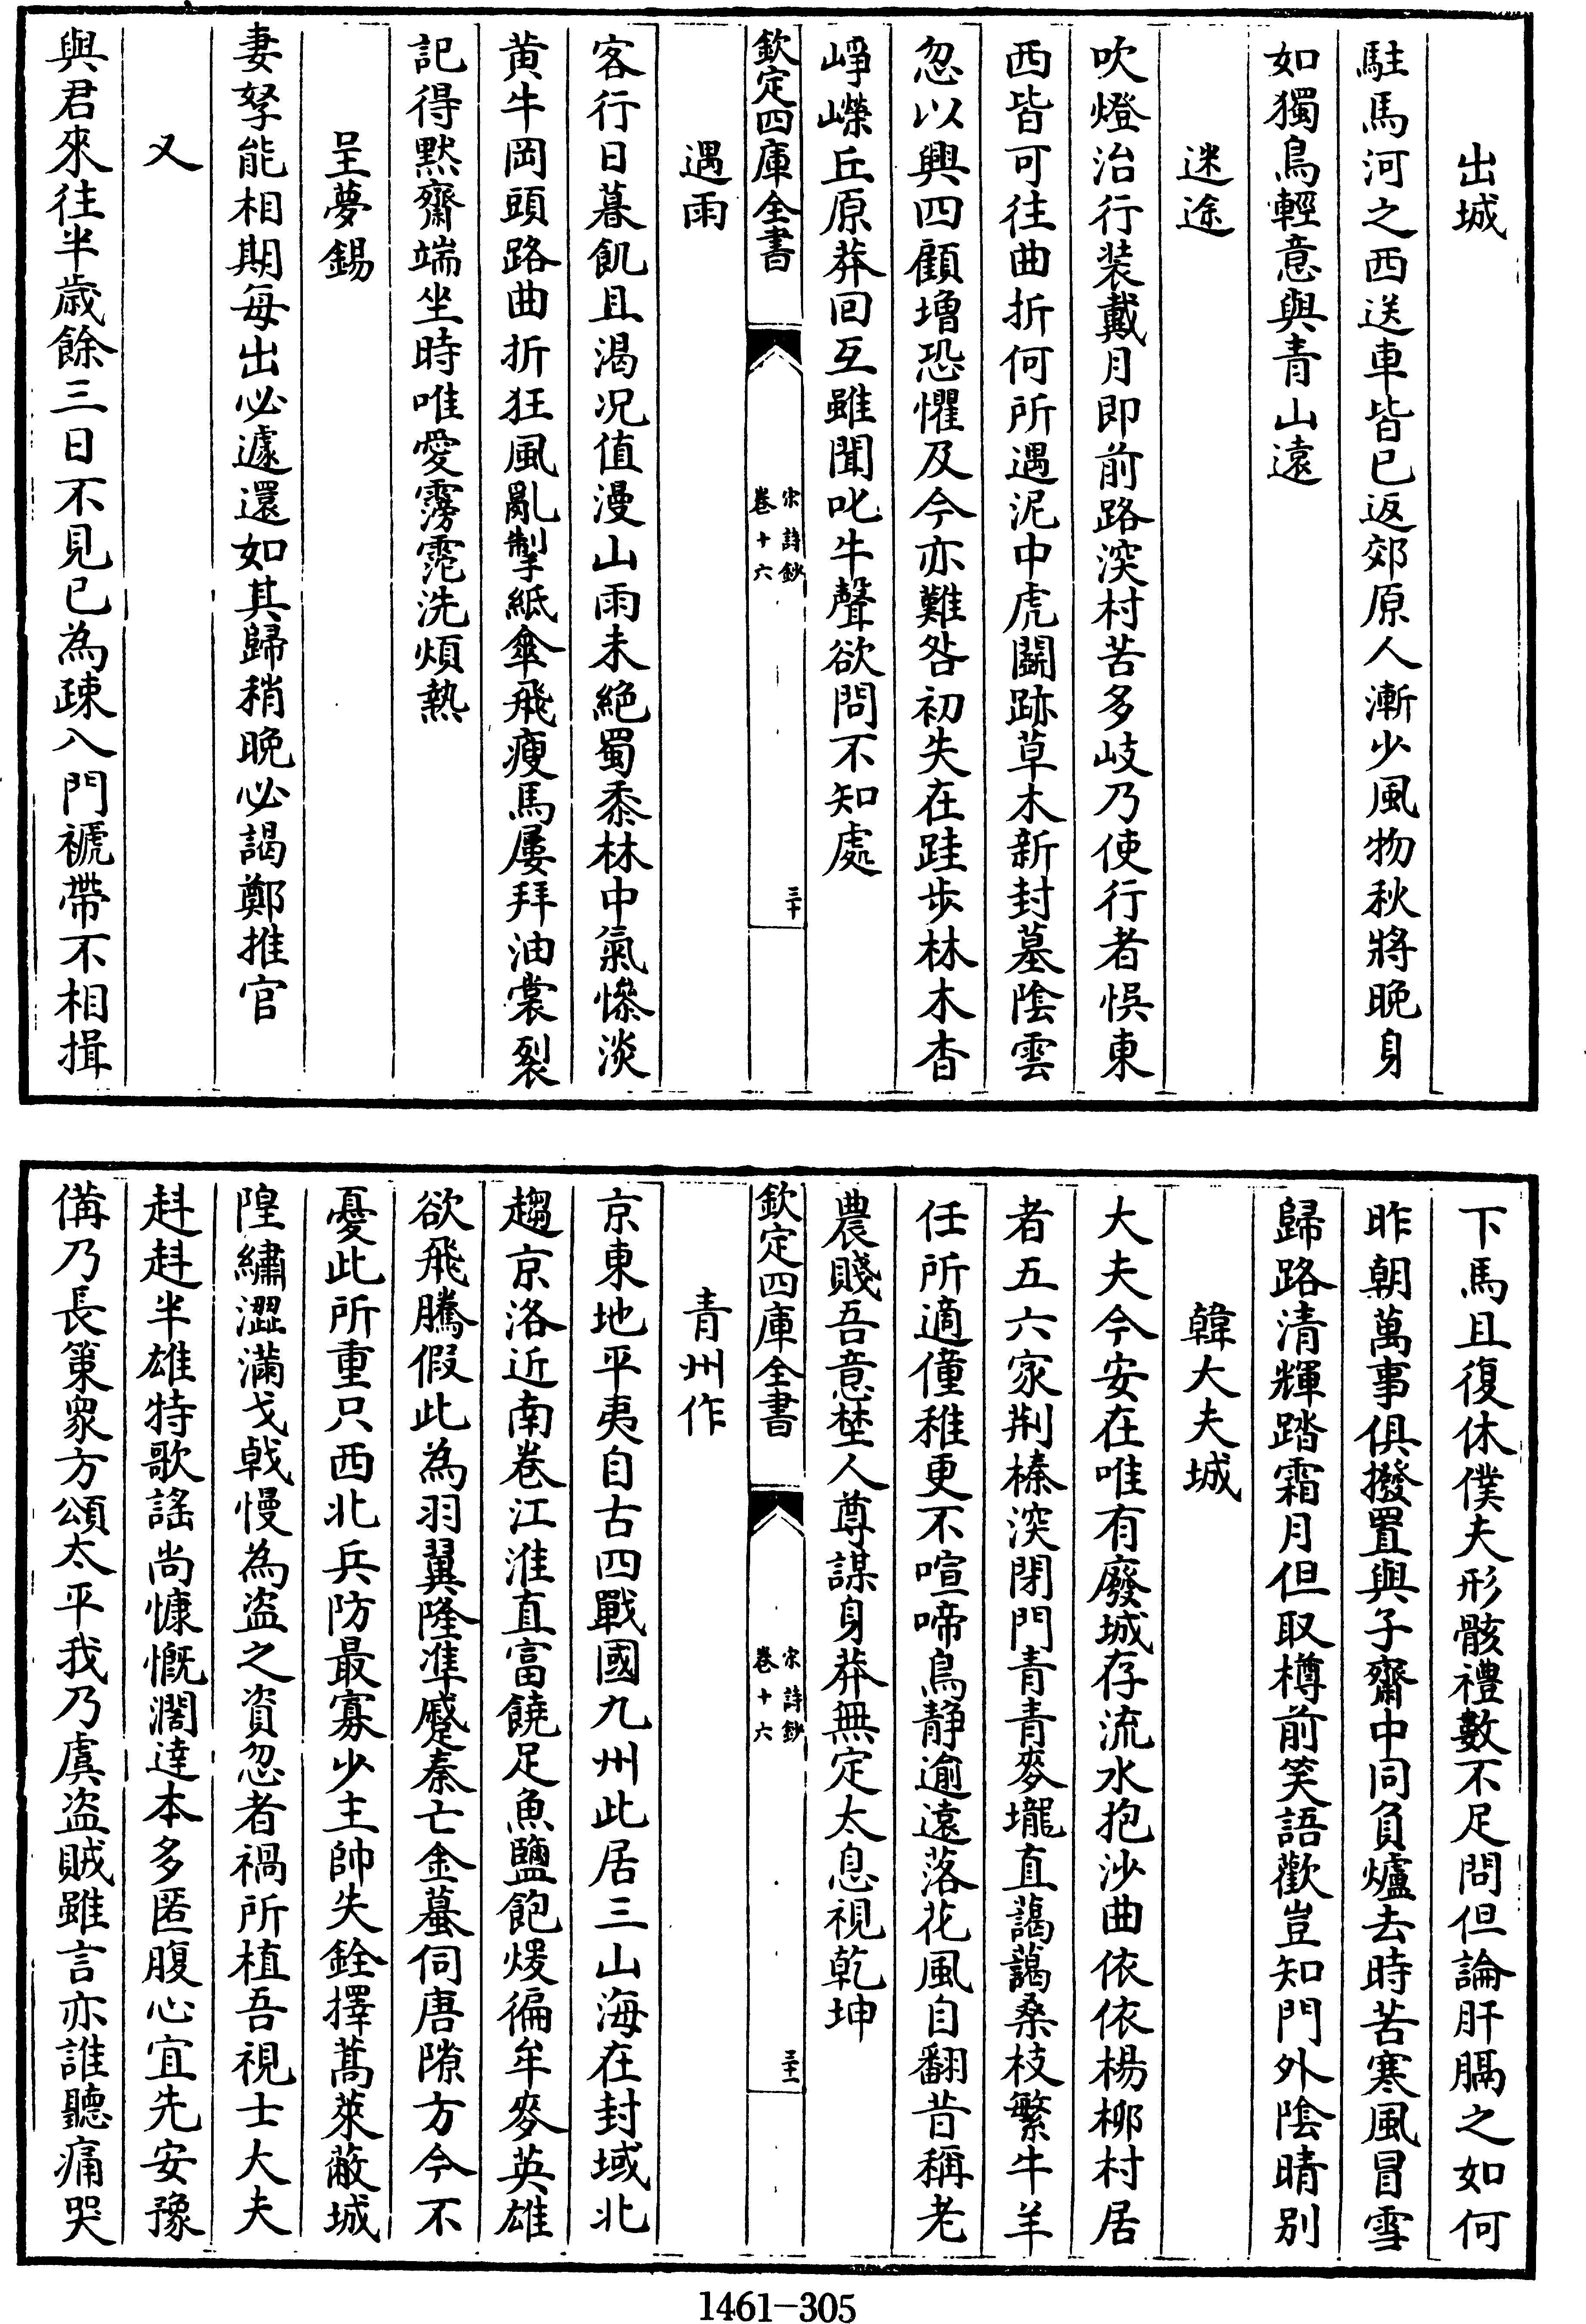 出城
駐馬河之西送車皆已返郊原人漸少風物秋將晚身
如獨鳥輕意與青山遠
迷途
吹燈治行装戴月即前路深村苦多岐乃使行者悞東
西皆可往曲折何所遇泥中虎鬭跡草木新封墓陰雲
忽以興四顧增恐懼及今亦難咎初失在跬步林木杳
崢嶸丘原莽回互雖聞叱牛聲欲問不知處
欽定四庫全書
宋詩鈔
卷十六
三十
遇雨
客行日暮飢且渴况值漫山雨未絶蜀黍林中氣慘淡
黄牛岡頭路曲折狂風亂掣紙傘飛瘦馬屢拜油裳裂
記得黙齋端坐時唯愛霶霮洗煩熱
呈夢錫
妻孥能相期每出必遽還如其歸稍晚必謁鄭推官
又
與君來往半歲餘三日不見已為疎入門褫帶不相揖
下馬且復休僕夫形骸禮數不足問但論肝膈之如何
昨朝萬事俱撥置與子齋中同負爐去時苦寒風冒雪
歸路清輝踏霜月但取樽前笑語歡豈知門外陰晴别
韓大夫城
大夫今安在唯有廢城存流水抱沙曲依依楊柳村居
者五六家荆榛深閉門青青麥壠直藹藹桑枝繁牛羊
任所適僮稚更不喧啼鳥靜逾遠落花風自翻昔稱老
農賤吾意埜人尊謀身莽無定太息視乾坤
欽定四庫全書
宋詩鈔
卷十六
三十一
青州作
京東地平夷自古四戰國九州此居三山海在封域北
趨京洛近南卷江淮直富饒足魚鹽飽煖徧牟麥英雄
欲飛騰假此為羽翼隆凖蹙秦亡金蟇伺唐隙方今不
憂此所重只西北兵防最寡少主帥失銓擇蒿萊蔽城
隍繡澀滿戈戟慢為盗之資忽者禍所植吾視士大夫
赳赳半雄特歌謡尚慷慨濶達本多匿腹心宜先安豫
備乃長策衆方頌太平我乃虞盗賊雖言亦誰聽痛哭
1461-305